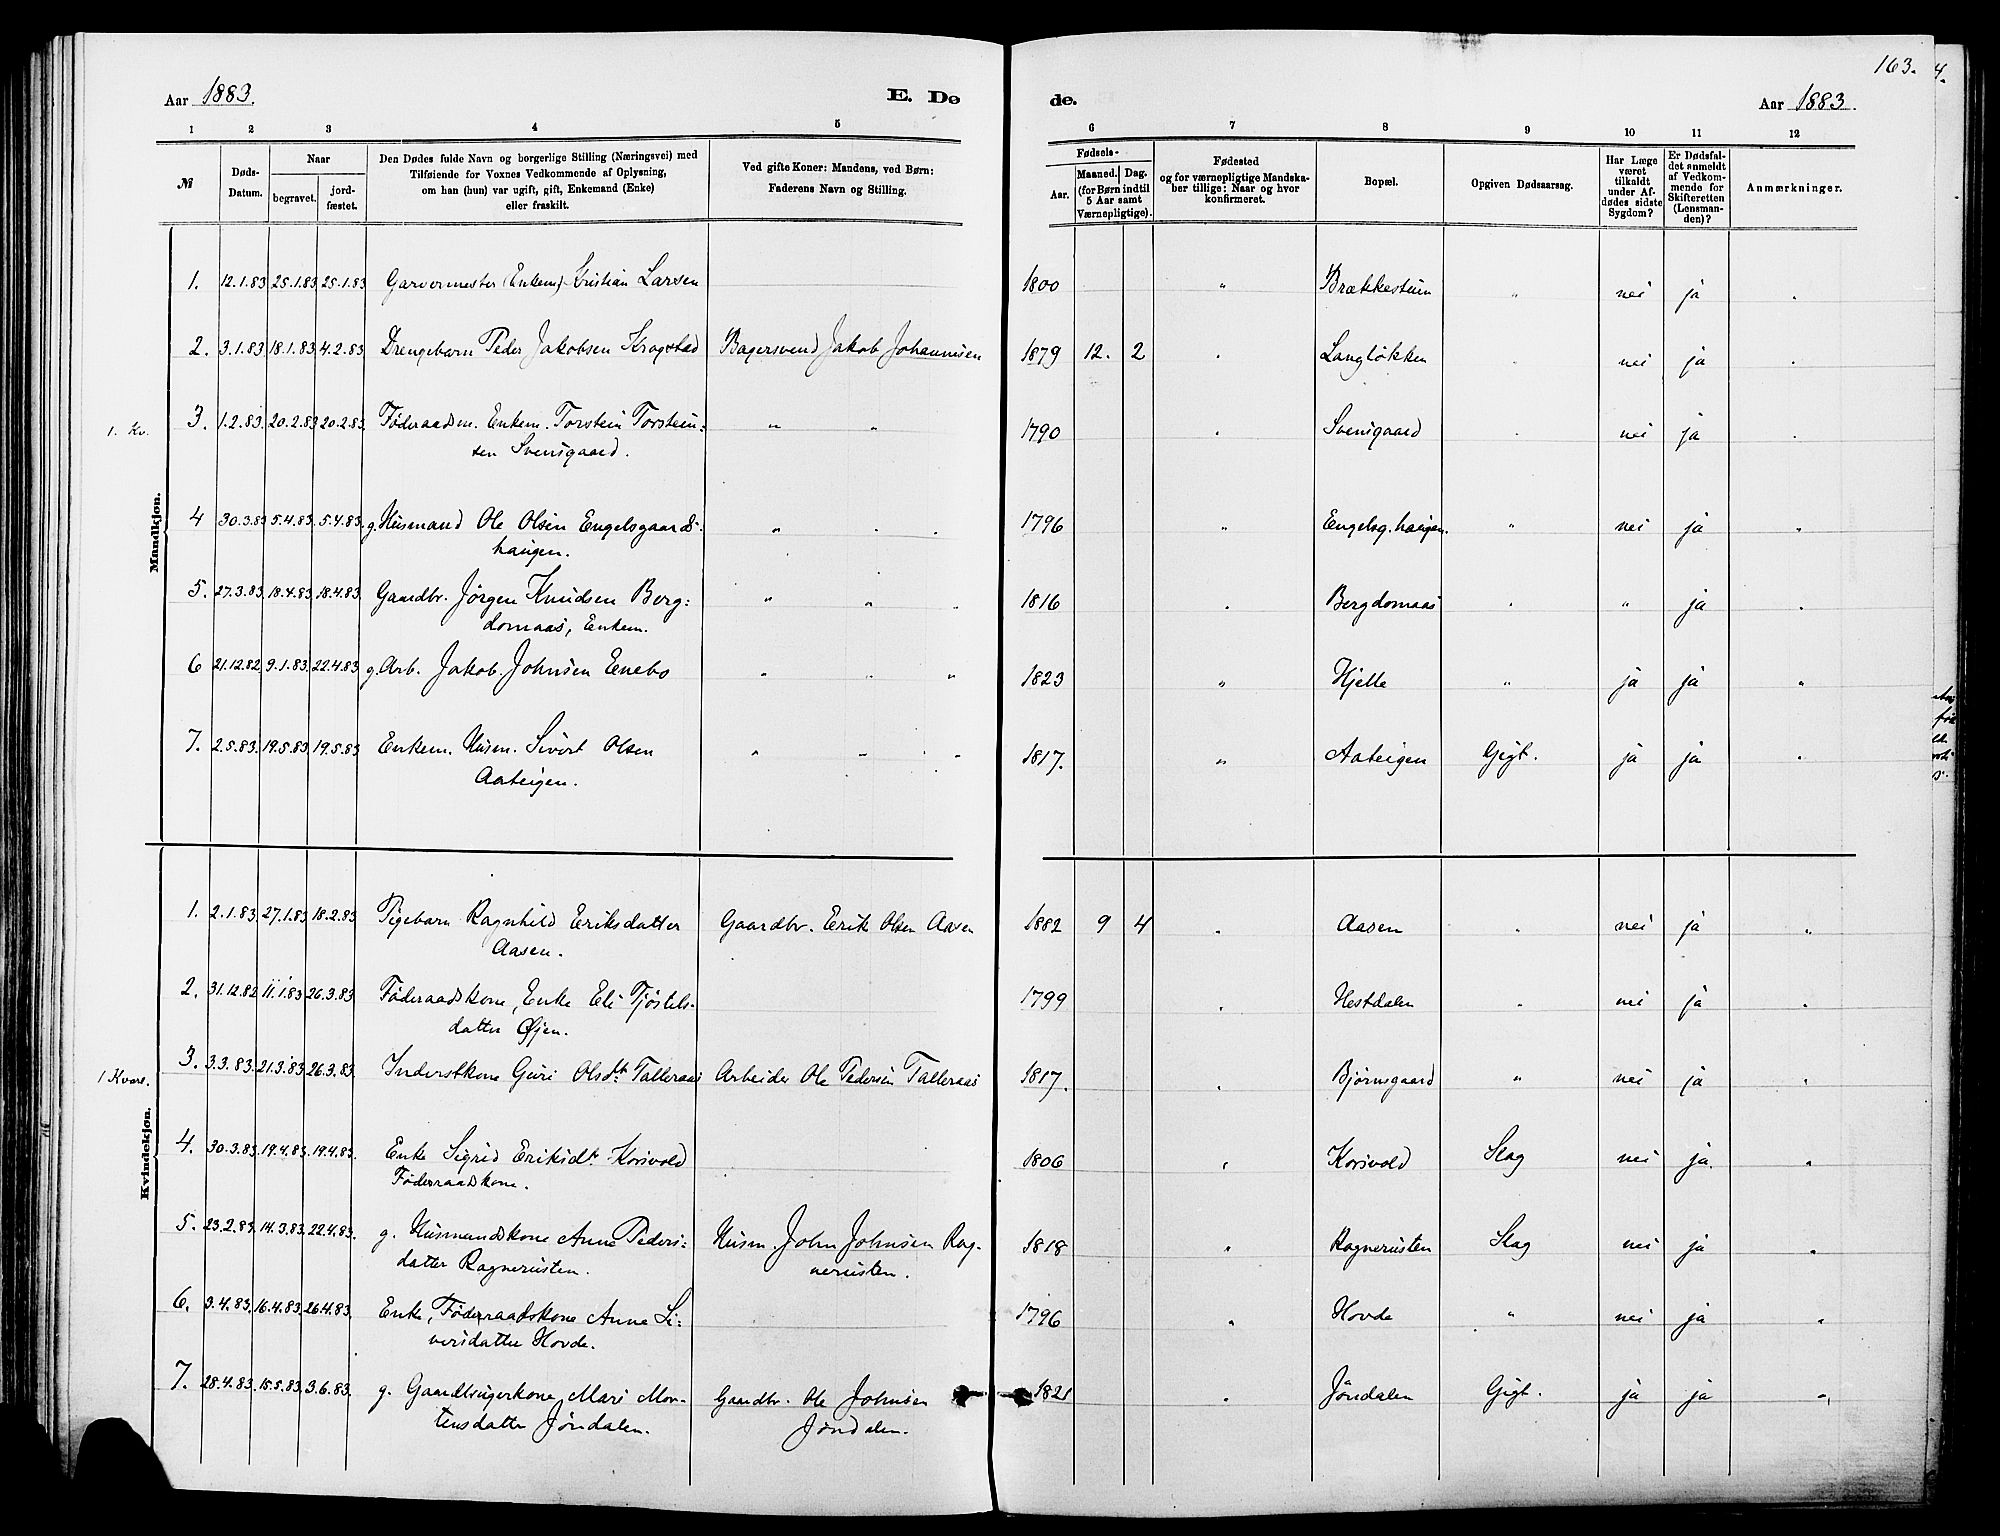 163.
4.
Aar 1883. E. Dø de. Aar 1883.
1 2 3 4 5 6 7 8 9 10 11 12
№
Døds-
Datum.
Naar
begravet.
jord-
fæstet.
Den Dødes fulde Navn og borgerlige Stilling (Næringsvei) med
Tilføiende for Voxnes Vedkommende af Oplysning,
om han (hun) var ugift, gift, Enkemand (Enke)
eller fraskilt.
Ved gifte Koner: Mandens, ved Børn:
Faderens Navn og Stilling.
Fødsels-
Aar.
Maaned. Dag.
(for Børn indtil
5 Aar samt
Værnepligtige).
Fødested
og for værnepligtige Mandska-
ber tillige: Naar og hvor
konfirmeret.
Bopæl.
Opgiven Dødsaarsag.
Har Læge
været
tilkaldt
under Af-
dødes sidste
Sygdom?
Er Dødsfal-
det anmeldt
af Vedkom-
mende for
Skifteretten
(Lensman-
den)?
Anmærkninger.
Mandkjøn.
1. 12.1.83 25.1.83 25.1.83 Garvermester (Enkem) Kristian Larsen 1800 " Brækkestuen " nei ja "
2. 3.1.83 18.1.83 4.2.83 Drengebarn Peder Jakobsen Kragstad Bagersvend Jakob Johannesen 1879 12. 2 " Langløkken " nei ja "
1. Kv. 3. 1.2.83. 20.2.83 20.2.83. Føderaadsm. Enkem. Torstein Torstein- " " 1790 " Svensgaard " nei ja "
sen Svensgaard.
4 30.3.83 5.4.83. 5.4.83. g. Husmand Ole Olsen Engelsgaards- " " " 1796 " Engelsg.haugen. " nei ja "
haugen.
5. 27.3.83. 18.4.83 18.4.83. Gaardbr. Jörgen Knudsen Berg- " " " 1816 " Bergdomaas " " ja "
domaas, Enkem.
6 21.12.82. 9.1.83. 22.4.83. g. Arb. Jakob Johnsen Enebo " " " 1823 " Hjelle " ja ja "
7. 2.5.83. 19.5.83 19.5.83 Enkem. Husm. Sivert Olsen " " " 1817. " Aateigen Gigt. ja ja "
Aateigen.
Kvindekjøn.
1. 2.1.83. 27.1.83 18.2.83 Pigebarn Ragnhild Eriksdatter Gaardbr. Erik Olsen Aasen 1882 9 4 " Aasen " nei ja "
Aasen.
2. 31.12.82 11.1.83 26.3.83. Føderaadskone, Enke Eli Tjøstels- 1799 " Hestdalen " nei ja "
datter Øjen.
1 Kvart. 3. 3.3.83. 21.3.83 26.3.83. Inderstkone Guri Olsdt. Talleraas Arbeider Ole Pedersen Talleraas 1817. " Bjørnsgaard " nei ja "
4. 30.3.83. 19.4.83. 19.4.83. Enke Sigrid Eriksdt. Korsvold 1806 " Korsvold Slag nei ja. "
Føderraadskone.
5. 23.2.83. 14.3.83. 22.4.83. g. Husmandskone Anne Peders- Husm. John Johnsen Rag- 1818 " Ragnerusten Slag nei ja "
datter Ragnerusten. nerusten.
6. 3.4.83. 16.4.83. 26.4.83. Enke, Føderraadskone Anne Si- 1796 " Hovde " nei ja "
versdatter Hovde.
7. 28.4.83. 15.5.83. 3.6.83. g. Gaardbrugerkone Mari Mor- Gaardbr. Ole Johnsen 1821 " Jøndalen Gigt. ja ja "
tensdatter Jøndalen. Jøndalen.